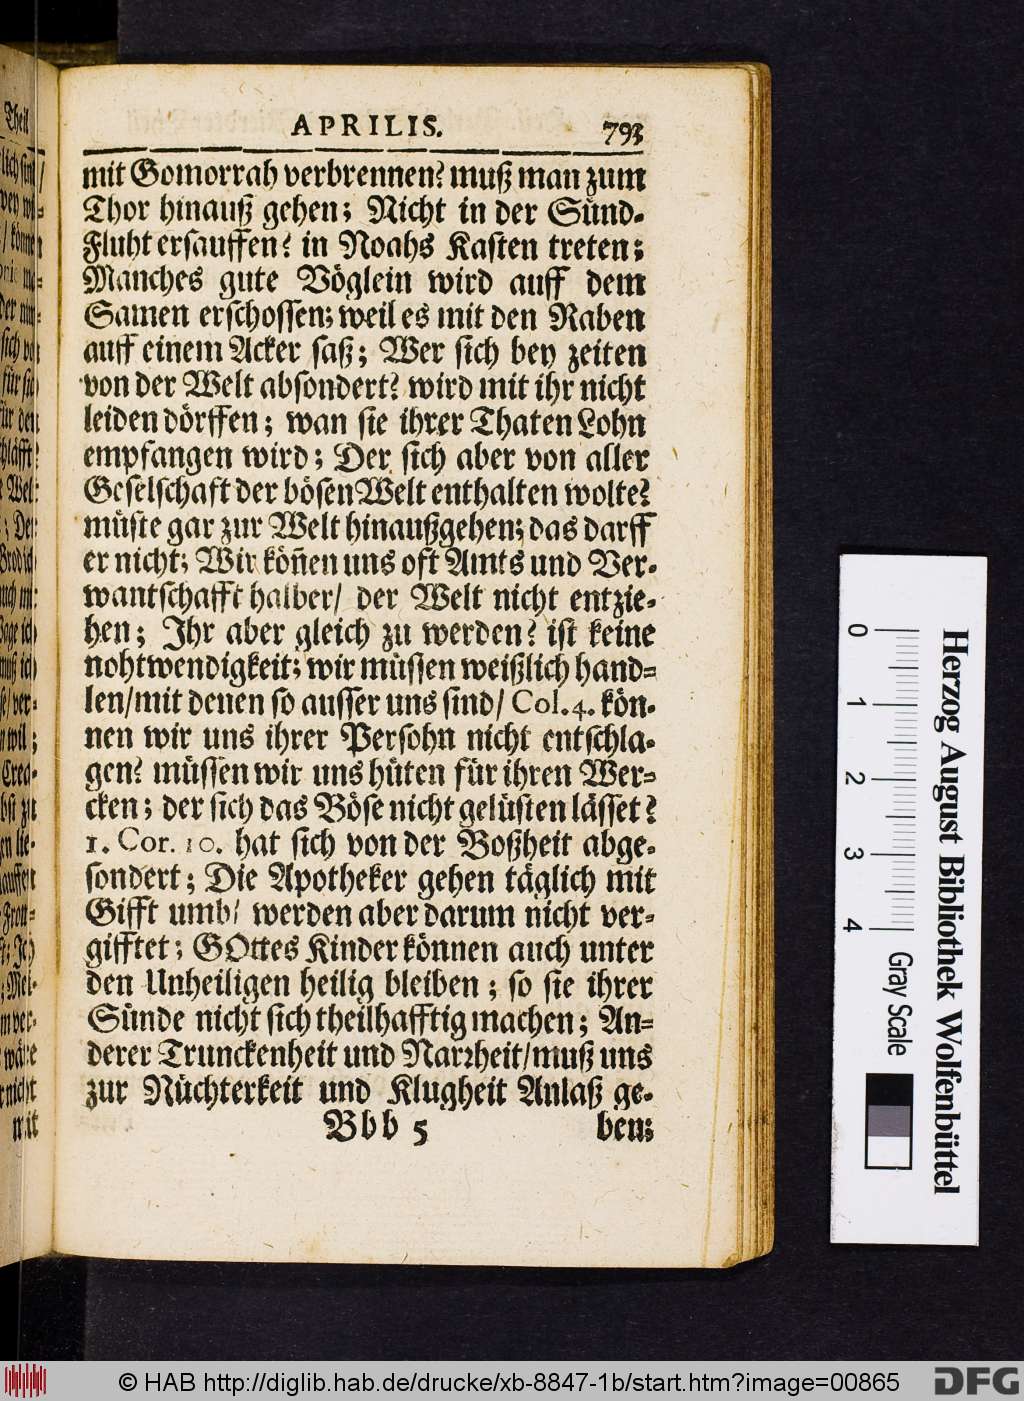 APRILIS. 793
mit Gomorrah verbrennen? muß man zum
Thor hinauß gehen; Nicht in der Sünd-
Fluht ersauffen? in Noahs Kasten treten;
Manches gute Vöglein wird auff dem
Samen erschossen; weil es mit den Raben
auff einem Acker saß; Wer sich bey zeiten
von der Welt absondert? wird mit ihr nicht
leiden dörffen; wan sie ihrer Thaten Lohn
empfangen wird; Der sich aber von aller
Geselschaft der bösen Welt enthalten wolte?
müste gar zur Welt hinaußgehen; das darff
er nicht; Wir kön̄en uns oft Amts und Ver-
wantschafft halber/ der Welt nicht entzie-
hen; Ihr aber gleich zu werden? ist keine
nohtwendigkeit; wir müssen weißlich hand-
len/mit denen so ausser uns sind/ Col.4. kön-
nen wir uns ihrer Persohn nicht entschla-
gen? müssen wir uns hüten für ihren Wer-
cken; der sich das Böse nicht gelüsten lässet?
1. Cor. 10. hat sich von der Boßheit abge-
sondert; Die Apotheker gehen täglich mit
Gifft umb/ werden aber darum nicht ver-
gifftet; GOttes Kinder können auch unter
den Unheiligen heilig bleiben; so sie ihrer
Sünde nicht sich theilhafftig machen; An-
derer Trunckenheit und Narrheit/muß uns
zur Nüchterkeit und Klugheit Anlaß ge-
Bbb 5 ben;
0 1 2 3 4
Gray Scale
Herzog August Bibliothek Wolfenbüttel
© HAB http://diglib.hab.de/drucke/xb-8847-1b/start.htm?image=00865
DFG